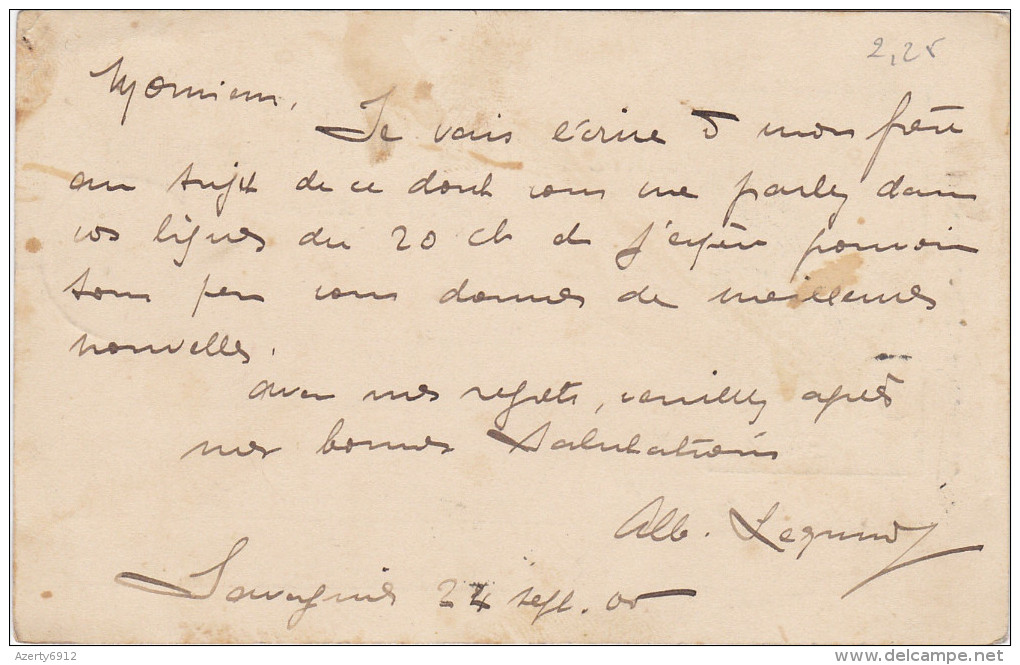 2,25
Monsieur,
Je vais écrire à mon frère
au sujet de ce dont vous me parlez dans
vos lignes du 20 ct & j'espère pouvoir
sous peu vous donner de meilleures
nouvelles.
Avec mes regrets, veuillez agréer
mes bonnes salutations
Alb. Legrand
24 sept. 05
Azerty6912
delcampe.net